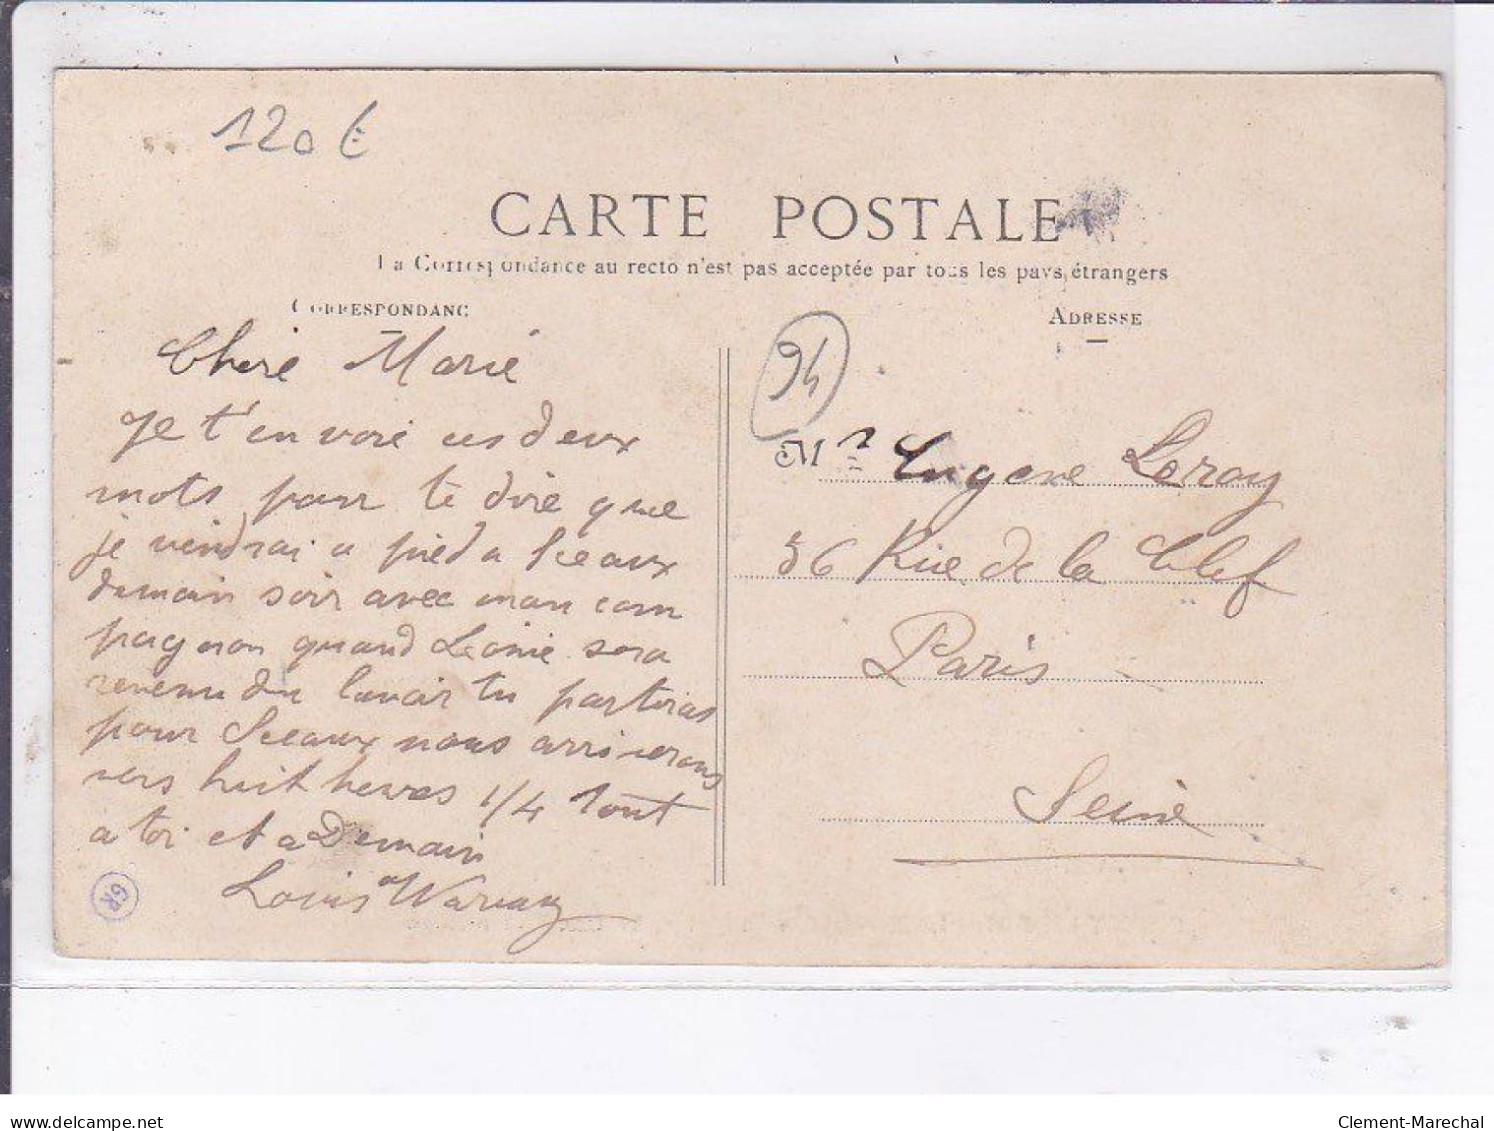 120 €
CARTE POSTALE
La Correspondance au recto n'est pas acceptée par tous les pays étrangers
CORRESPONDANC
ADRESSE
94
Chere Marie
Je t'envoie ces deux
mots pour te dire que
je viendrai a pied a Sceaux
demain soir avec mon com
pagnon quand Leonie sera
revenu du lavoir tu partiras
pour Sceaux nous arriverons
vers huit heures 1/4 Tout
a toi et a Demain
Louis
Mr Eugene Leroy
36 Rue de la Clef
Paris
Seine
GR
delcampe.net
Clement-Marechal